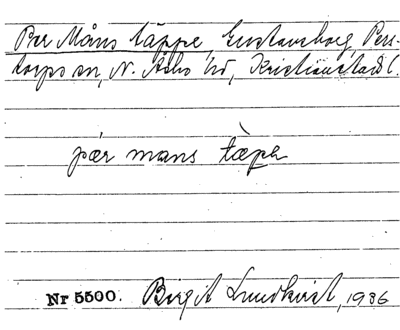 Per Måns täppe, Gustavsborg, Pers-
torps sn, N. Åsbo hd, Kristianstads l.
pær mans tæpe
Nr 5500. Birgit Lundkvist, 1936